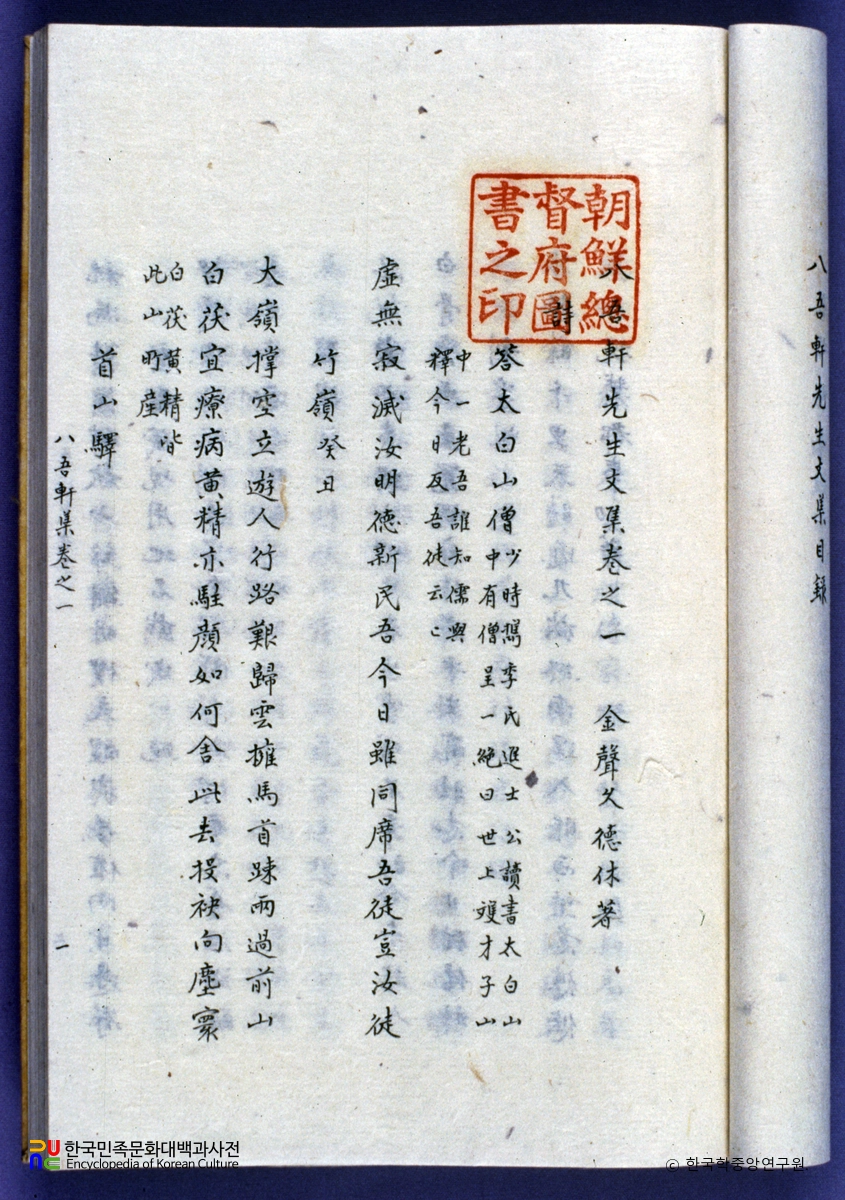 八吾軒先生文集目錄
朝鮮總
督府圖
書之印
八吾軒先生文集卷之一 金聲久德休著
詩
答太白山僧 少時携李氏進士公讀書太白山
中有僧呈一絶曰世上雙才子山
中一老吾誰知儒與
釋今日反吾徒云〻
虛無寂滅汝明德新民吾今日雖同席吾徒豈汝徒
竹嶺 癸丑
大嶺撑空立遊人行路艱歸雲擁馬首踈雨過前山
白茯宜療病黃精亦駐顔如何舍此去投袂向塵寰
白茯黃精皆
此山所産
首山驛
八吾軒集卷之一 一
한국민족문화대백과사전
Encyclopedia of Korean Culture
© 한국학중앙연구원